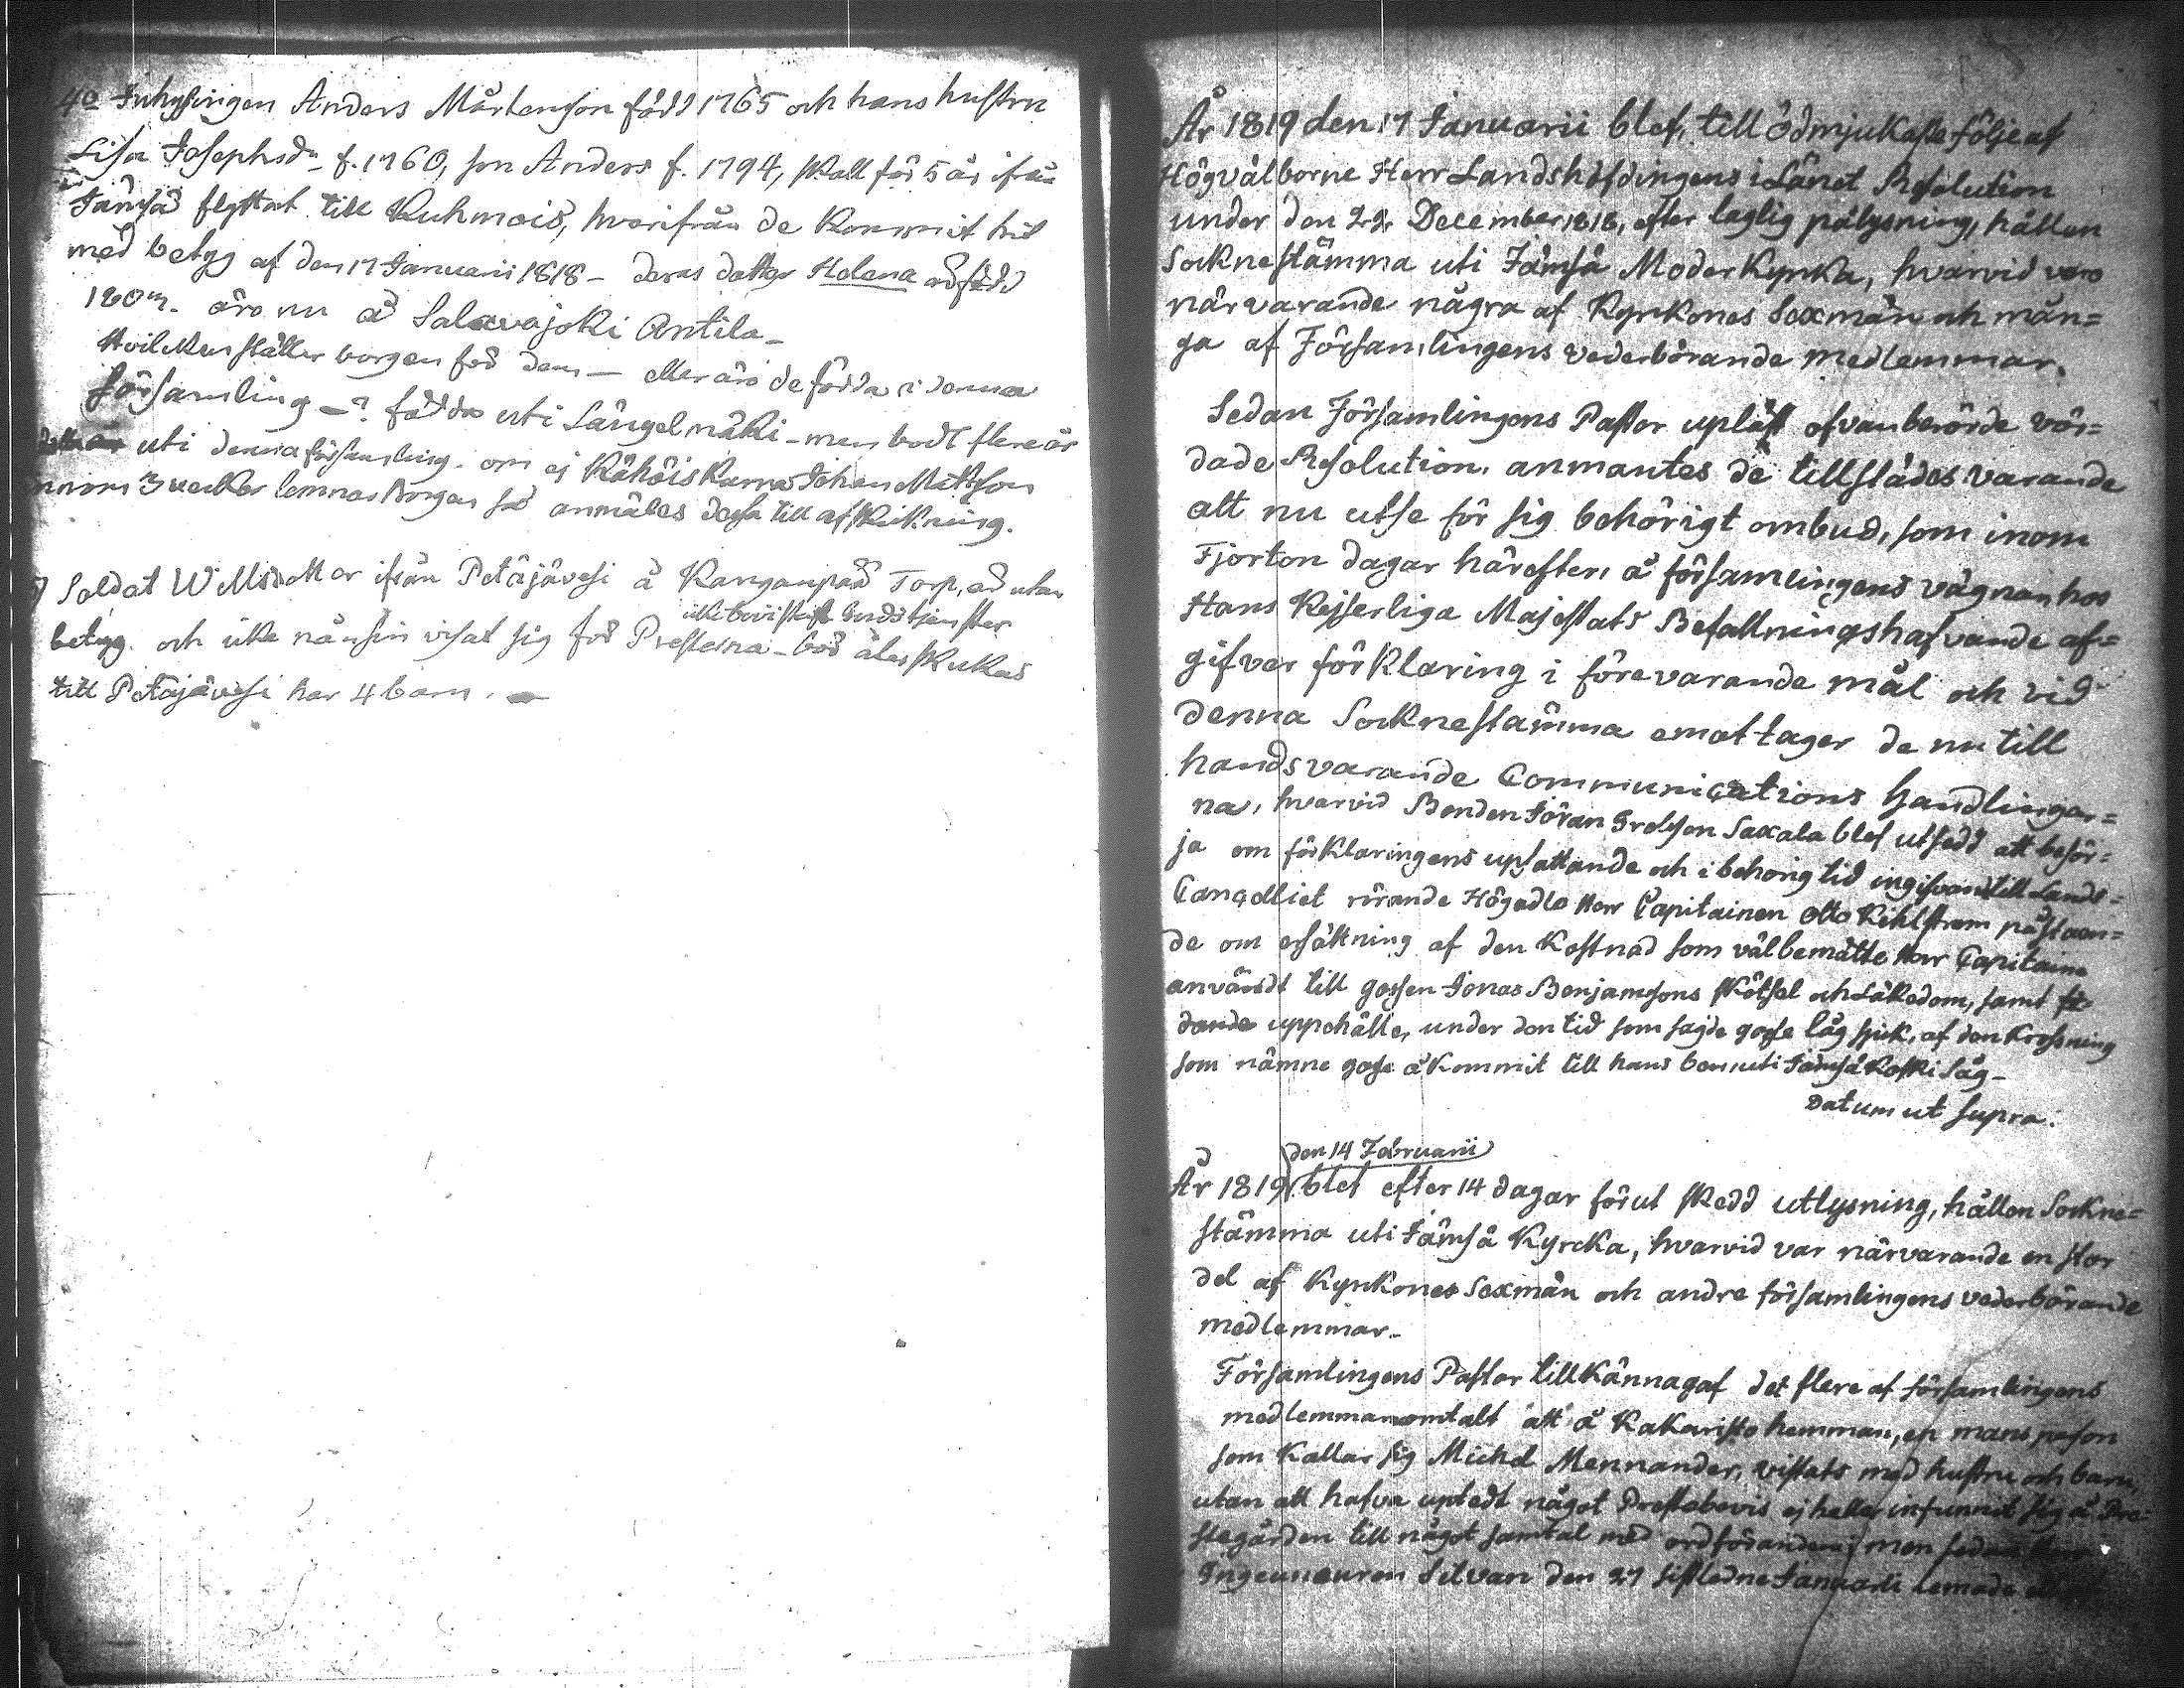 4o Inhysingen Anders Mårtenson född 1765 och hans hustru
Lisa Josephsdr f. 1760, son Anders f. 1794, skall för 5 år ifrån
Jämsä flyttat till Kuhmois, hvarifrån de kommit hit
med betyg af den 17 Januarii 1818 – deras dotter Helena är född
180 . äro nu å Salavajoki Antila –
Hvilken ställer borgen för dem – eller äro de födda i denna
församling –? födda uti Längelmäki – men bodt flere år
uti denna församling. om ej Kähöis Johan Mattson
innom 3 veckor lemnar Borgen så anmäles dessa till afskickning.
Soldat Willsdotter ifrån Petäjävesi å Kanganpää Torp, är utan
icke bevistat Gudstjenster
betyg. och icke nånsin visat sig för Presterna – bör åter skickas
till Petäjävesi har 4 barn.
År 1819 den 17 Januarii blef, till ödmjukaste följe af
Högvälborne Herr Landshöfdingens i Länet Resolution
under den 22. December 1818, efter laglig pålysning, hållen
Socknestämma uti Jämsä Moder Kyrka, hvarvid voro
närvarande några af Kyrkones Sexmän och mån=
ga af Församlingens vederbörande medlemmar.
Sedan Församlingens Pastor upläst ofvanberörde vör=
dade Resolution, anmantes de tillstädes varande
att nu utse för sig behörigt ombud, som inom
Fjorton dagar härefter, å församlingens vägnar hos
Hans Kejserliga Majestäts Befallningshafvande af=
gifver förklaring i förevarande mål och vid
denna Socknestämma emottager de nu till
hands varande Communications handlingar=
na, hvarvid Bonden Jöran Erolsson Saxala blef utsedd att besör=
ja om förklaringens upsättande och i behörig tid ingifvand till Lands=
Cancelliet rörande Högädle Herr Capitainen Otto Kihlstrom påståen=
de om ersättning af den Kostnad som välbemälte Herr Capitaine
användt till gossen Jonas Benjamssons skötsel och Läkedom, samt fö=
dande uppehälle, under den tid som sagde gosse låg sjuk, af den Krossning
som nämne gosse åkommit till hans ben uti Jämsä Koski Såg –
Datum ut supra.
den 14 Februarii
År 1819 blef efter 14 dagar förut skedd utlysning, hållen Sockne=
stämma uti Jämsä Kyrcka, hvarvid var närvarande en stor
del af Kyrkones Sexmän och andre församlingens vederbörande
medlemmar –
Församlingens Pastor tillkännagaf det flere af församlingens
medlemmar omtalt att å Kakaristo hemman, en mans person
som kallar sig Michel Mennander, vistats med hustru och barn,
utan att hafva uptedt något Prestebevis ej heller infunnit sig å Pre=
stegården till något samtal med ordföranden; men sedan
Ingenieuren Silvan den 27 sistledne Januarii lemnade